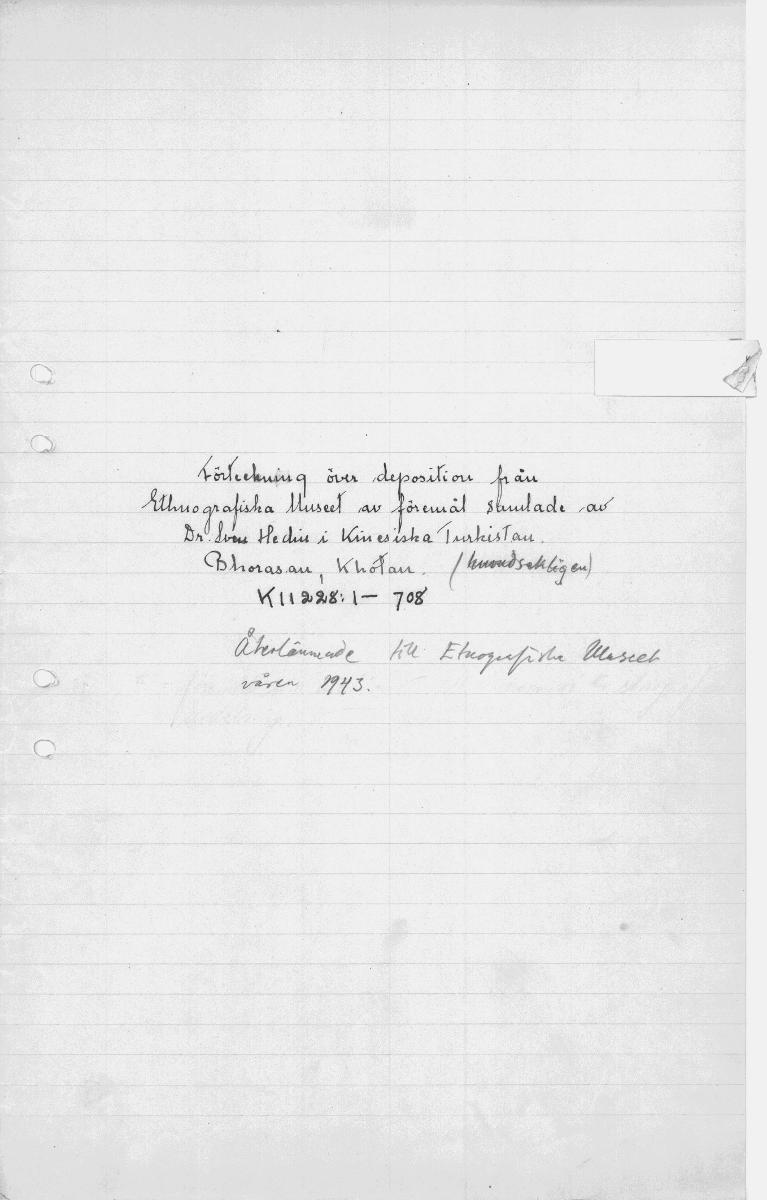 Förteckning över deposition från
Ethnografiska Museet av föremål samlade av
Dr. Sven Hedin i Kinesiska Turkistan.
Bhorasan, Khotan. (huvudsakligen)
K11228:1— 708
Återlämnade till Etnografiska Museet
våren 1943.